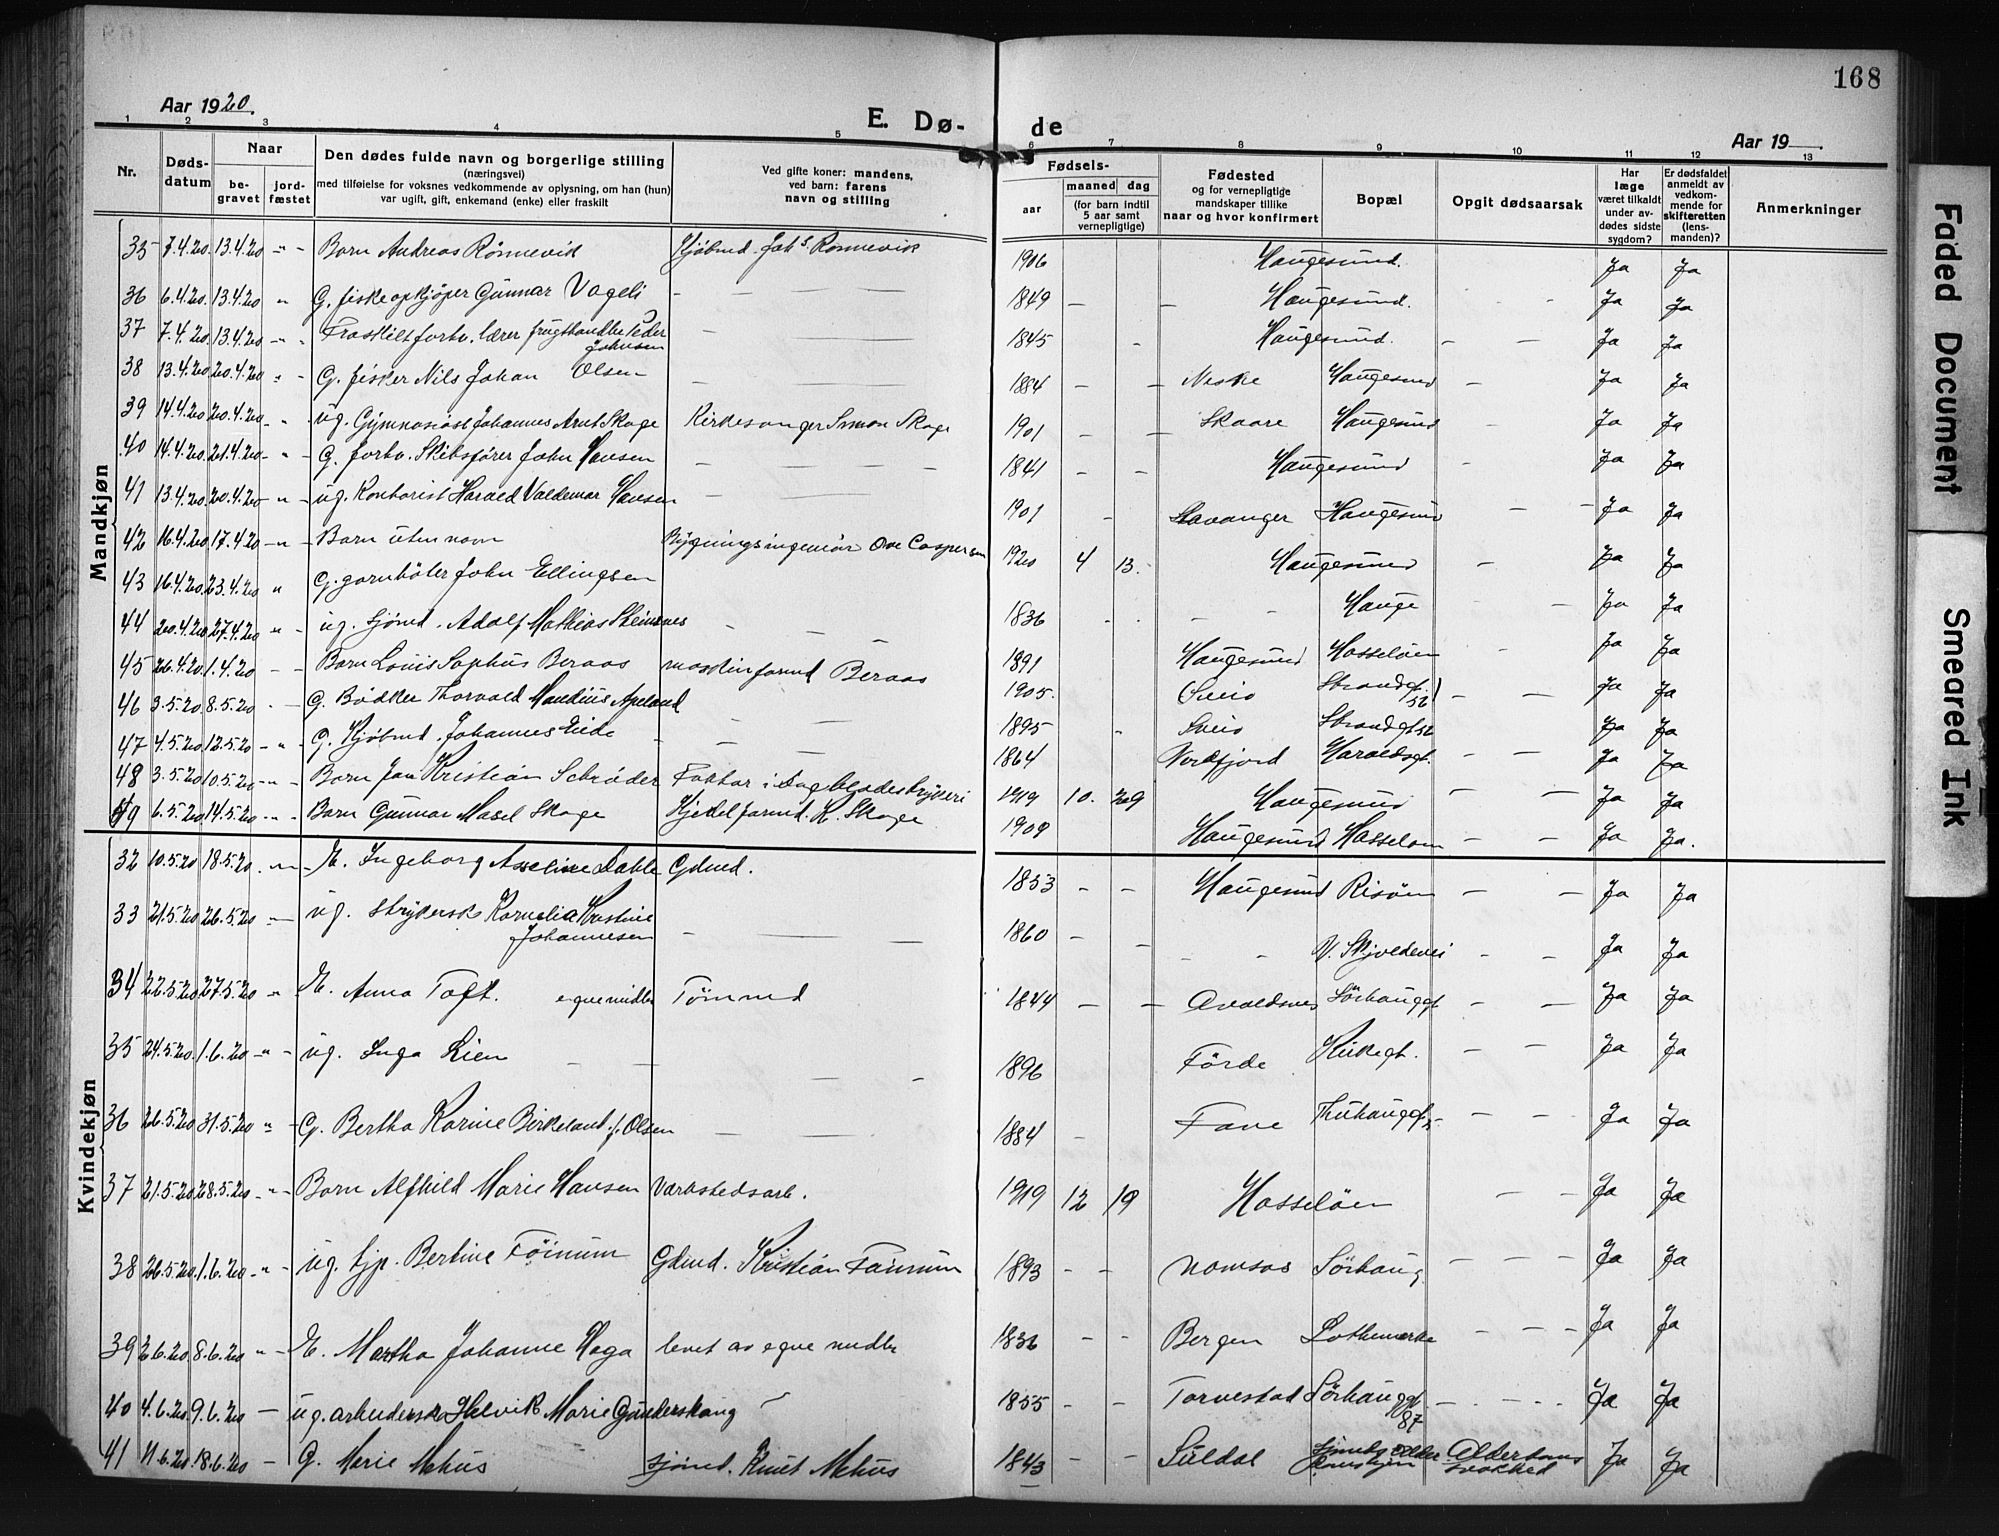 168
Aar 1920.
E. Dø-
de
Aar 19
1 2 3 4 5 6 7 8 9 10 11 12 13
Nr.
Døds-
datum
Naar
be-
gravet
jord-
fæstet
Den dødes fulde navn og borgerlige stilling
(næringsvei)
med tilføielse for voksnes vedkommende av oplysning, om han (hun)
var ugift, gift, enkemand (enke) eller fraskilt
Ved gifte koner: mandens,
ved barn: farens
navn og stilling
Fødsels-
aar
maaned dag
(for barn indtil
5 aar samt
vernepligtige)
Fødested
og for vernepligtige
mandskaper tillike
naar og hvor konfirmert
Bopæl
Opgit dødsaarsak
Har
læge
været tilkaldt
under av-
dødes sidste
sygdom?
Er dødsfaldet
anmeldt av
vedkom-
mende for
skifteretten
(lens-
manden)?
Anmerkninger
Mandkjøn
35 7.4.20 13.4.20 " - Barn Andreas Rönnevik Kjöbmd. Johs. Rönnevik 1906 Haugesund. Ja Ja
36 6.4.20 13.4.20 " G. fiskeopkjöper Gunnar Vageli - 1849 - - Haugesund. Ja Ja
37 7.4.20 13.4.20 " Fraskilt forhv. lærer frugthandler Peder
Johnsen - 1845 - Haugesund. - - Ja Ja
38 13.4.20 20.4.20 " G. fisker Nils Johan Olsen - 1884 - - Haugesund - Ja Ja
39 14.4.20 20.4.20 " ug. Gymnasiast Johannes Arnt Skage Kirkesanger Simon Skage 1901 - - Skaare Haugesund - Ja Ja
40 14.4.20 21.4.20 - " G. forhv. Skibsförer John Hansen - - - - 1841 - - Haugesund - Ja Ja
41 13.4.20 20.4.20 - " ug. Kontorist Harald Valdemar Hansen - - 1901 - Stavanger Haugesund - - Ja Ja
42 16.4.20 17.4.20 - " Barn uten navn Bygningsingeniör Ove Caspersen 1920 4 13. Haugesund - Ja Ja
43 16.4.20 23.4.20 " G. garnböter John Ellingsen 1836 - - Hauge - Ja Ja
44 20.4.20 27.4.20 " - ug. sjömd. Adolf Mathias Steinsnes - - - 1891 Haugesund Hasselöen - Ja Ja
45 26.4.20 1.4.20 - - Barn Louis Sophus Beraas maskinformd Beraas 1905. Sveio Strandgt.
56 - - Ja Ja
46 3.5.20 8.5.20 - G. Bödker Thorvald Mandius Apeland - - 1895 - Sveio Strandgt 56 Ja Ja
47 4.5.20 12.5.20 - " G. Kjöbmd. Johannes Eide - - 1864 Nordfjord Haraldsgt. Ja Ja
48 3.5.20 10.5.20 - " Barn Jan Kristian Schröder Faktor i Dagbladestrykeri 1919 10. 29 Haugesund Ja Ja
49 6.5.20 14.5.20 " - Barn Gunnar Masel Skage Kjedelformd. K. Skage 1909 Haugesund Hasseloen - - Ja Ja.
Kvindekjøn
32 10.5.20 18.5.20 . " - E. Ingeborg Asseline Dahle Gdmd. 1853 - - Haugesund Risöen - - Ja Ja
33 21.5.20 26.5.20 " - ug. strykersk Kornelia Kristine
Johannesen - - - 1860 - - - - V. Skjoldevei - - Ja Ja
34 22.5.20 27.5.20 " E. Anna Toft. egne midler Tömmd 1844 - - Avaldsnes Sörhauggt - - Ja Ja
35 24.5.20 1.6.20 - " - ug. Inga Lien - - - 1896 Förde Kirkegt. - - Ja Ja
36 26.5.20 31.5.20 " - G. Bertha Karine Birkeland f. Olsen - - 1884 - Fane - - Ja Ja
37 21.5.20 28.5.20 - " - Barn Alfhild Marie Hansen Værkstedsarb. 1919 12 19 Hasselöen - - Ja Ja
38 26.5.20 1.6.20 - " - ug. tjp. Bertine Föinum Gdmd. Kristian Föinum 1893 - - Namsos Sörhaug - - - Ja Ja
39 2.6.20 8.6.20 - " - E. Martha Johanne Haga levet av egne midler 1836 - - Bergen Lothemarka - - - Ja Ja
40 4.6.20 9.6.20 - ug. arbeidersk. Helvik Marie Gunderskaug 1855 - - Torvestad Sörhauggt
87 - - - - Ja Ja
41 11.6.20 18.6.20 - G. Marie Mehus sjömd. Knut Mehus 1843 - - Suldal Alderdoms
svakhed Ja Ja
Faded Document
Smeared Ink